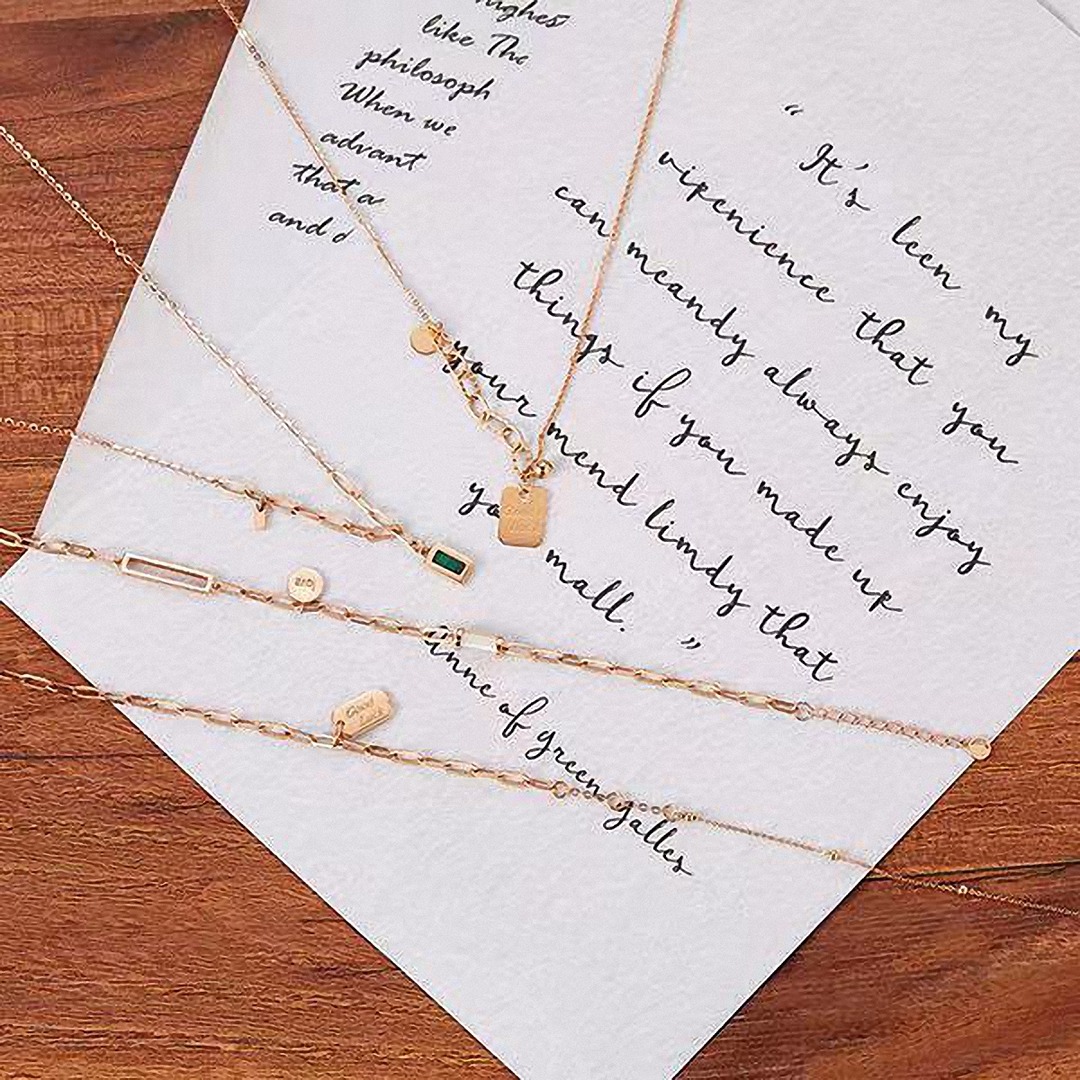 like The
philosoph
When we
advant
that a
and d
"
It's leen my
vipenience that you
can meandy always enjoy
things if you made up
your mend limdy that
yo mall. "
anne of green galles
Good